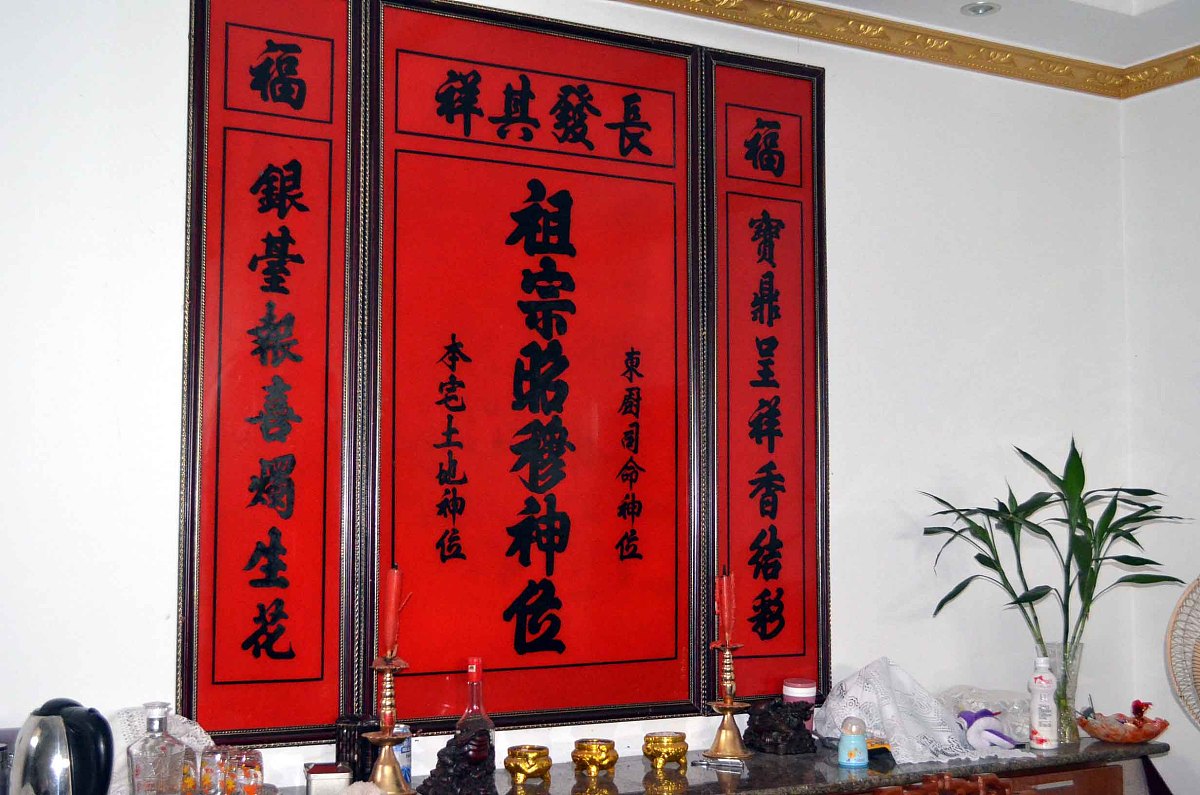 長發其祥
福
寶鼎呈祥香結彩
東廚司命神位
祖宗昭穆神位
本宅土地神位
福
銀臺報喜燭生花